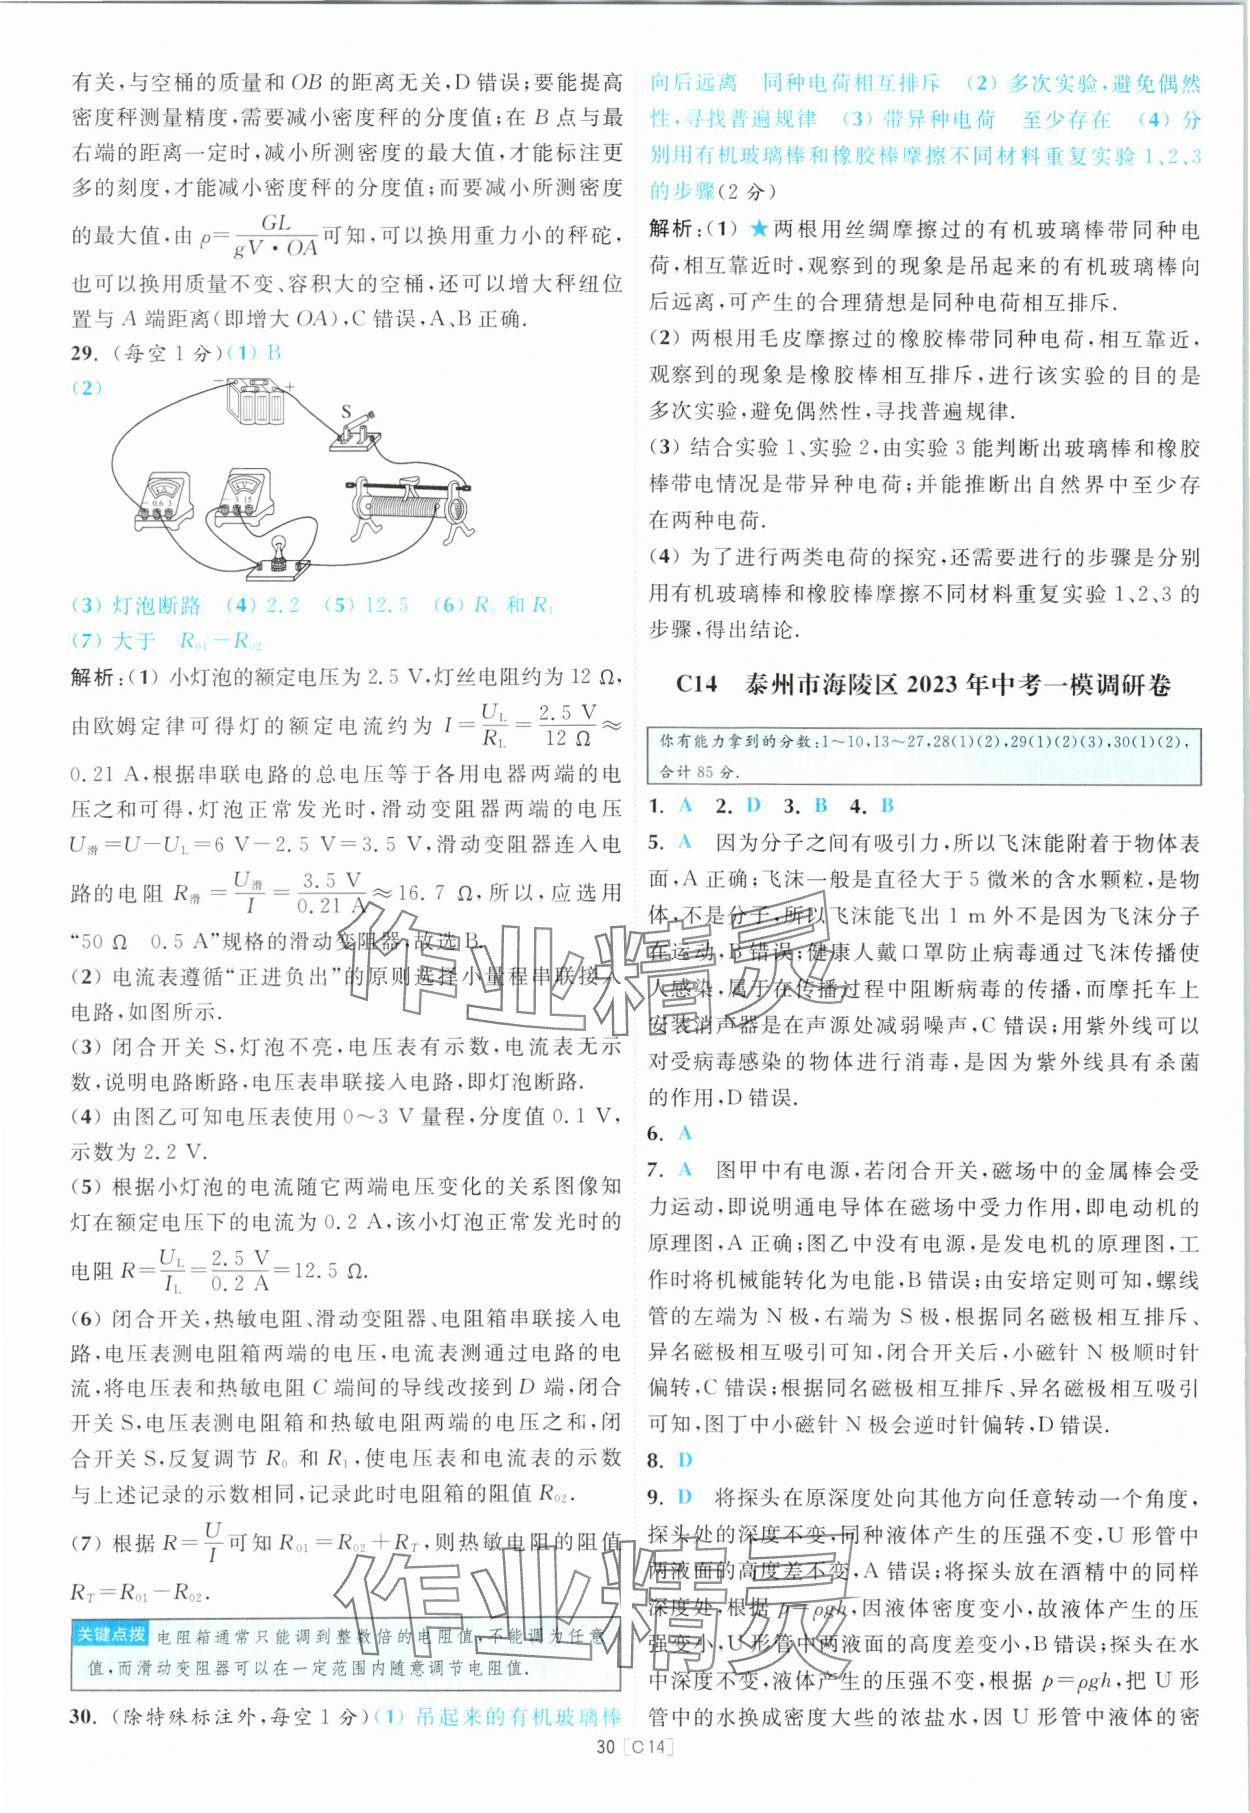 有关,与空桶的质量和 OB 的距离无关,D 错误;要能提高
密度秤测量精度,需要减小密度秤的分度值;在 B 点与最
右端的距离一定时,减小所测密度的最大值,才能标注更
多的刻度,才能减小密度秤的分度值;而要减小所测密度
的最大值,由 ρ=GL/(gV·OA)可知,可以换用重力小的秤砣,
也可以换用质量不变、容积大的空桶,还可以增大秤纽位
置与 A 端距离(即增大 OA),C 错误,A、B 正确.
29. (每空 1 分)(1) B
(2)
− +
S
A
- 0.6 3
V
- 3 15
(3) 灯泡断路 (4) 2.2 (5) 12.5 (6) R₀ 和 R₁
(7) 大于 R₀₁−R₀₂
解析:(1) 小灯泡的额定电压为 2.5 V,灯丝电阻约为 12 Ω,
由欧姆定律可得灯的额定电流约为 I=U_L/R_L=2.5 V/12 Ω≈
0.21 A,根据串联电路的总电压等于各用电器两端的电
压之和可得,灯泡正常发光时,滑动变阻器两端的电压
U滑=U−U_L=6 V−2.5 V=3.5 V,滑动变阻器连入电
路的电阻 R滑=U滑/I=3.5 V/0.21 A≈16.7 Ω,所以,应选用
“50 Ω 0.5 A”规格的滑动变阻器,故选 B.
(2) 电流表遵循“正进负出”的原则选择小量程串联接入
电路,如图所示.
(3) 闭合开关 S,灯泡不亮,电压表有示数,电流表无示
数,说明电路断路,电压表串联接入电路,即灯泡断路.
(4) 由图乙可知电压表使用 0~3 V 量程,分度值 0.1 V,
示数为 2.2 V.
(5) 根据小灯泡的电流随它两端电压变化的关系图像知
灯在额定电压下的电流为 0.2 A,该小灯泡正常发光时的
电阻 R=U_L/I_L=2.5 V/0.2 A=12.5 Ω.
(6) 闭合开关,热敏电阻、滑动变阻器、电阻箱串联接入电
路,电压表测电阻箱两端的电压,电流表测通过电路的电
流,将电压表和热敏电阻 C 端间的导线改接到 D 端,闭合
开关 S,电压表测电阻箱和热敏电阻两端的电压之和,闭
合开关 S,反复调节 R₀ 和 R₁,使电压表和电流表的示数
与上述记录的示数相同,记录此时电阻箱的阻值 R₀₂.
(7) 根据 R=U/I可知 R₀₁=R₀₂+R_T,则热敏电阻的阻值
R_T=R₀₁−R₀₂.
关键点拨 电阻箱通常只能调到整数倍的电阻值,不能调为任意
值,而滑动变阻器可以在一定范围内随意调节电阻值.
30. (除特殊标注外,每空 1 分)(1) 吊起来的有机玻璃棒
向后远离 同种电荷相互排斥 (2) 多次实验,避免偶然
性,寻找普遍规律 (3) 带异种电荷 至少存在 (4) 分
别用有机玻璃棒和橡胶棒摩擦不同材料重复实验 1、2、3
的步骤(2 分)
解析:(1) ★两根用丝绸摩擦过的有机玻璃棒带同种电
荷,相互靠近时,观察到的现象是吊起来的有机玻璃棒向
后远离,可产生的合理猜想是同种电荷相互排斥.
(2) 两根用毛皮摩擦过的橡胶棒带同种电荷,相互靠近,
观察到的现象是橡胶棒相互排斥,进行该实验的目的是
多次实验,避免偶然性,寻找普遍规律.
(3) 结合实验 1、实验 2,由实验 3 能判断出玻璃棒和橡胶
棒带电情况是带异种电荷;并能推断出自然界中至少存
在两种电荷.
(4) 为了进行两类电荷的探究,还需要进行的步骤是分别
用有机玻璃棒和橡胶棒摩擦不同材料重复实验 1、2、3 的
步骤,得出结论.
C14 泰州市海陵区 2023 年中考一模调研卷
你有能力拿到的分数:1~10,13~27,28(1)(2),29(1)(2)(3),30(1)(2),
合计 85 分.
1. A 2. D 3. B 4. B
5. A 因为分子之间有吸引力,所以飞沫能附着于物体表
面,A 正确;飞沫一般是直径大于 5 微米的含水颗粒,是物
体,不是分子,所以飞沫能飞出 1 m 外不是因为飞沫分子
在运动,B 错误;健康人戴口罩防止病毒通过飞沫传播使
人感染,属于在传播过程中阻断病毒的传播,而摩托车上
安装消声器是在声源处减弱噪声,C 错误;用紫外线可以
对受病毒感染的物体进行消毒,是因为紫外线具有杀菌
的作用,D 错误.
6. A
7. A 图甲中有电源,若闭合开关,磁场中的金属棒会受
力运动,即说明通电导体在磁场中受力作用,即电动机的
原理图,A 正确;图乙中没有电源,是发电机的原理图,工
作时将机械能转化为电能,B 错误;由安培定则可知,螺线
管的左端为 N 极,右端为 S 极,根据同名磁极相互排斥、
异名磁极相互吸引可知,闭合开关后,小磁针 N 极顺时针
偏转,C 错误;根据同名磁极相互排斥、异名磁极相互吸引
可知,图丁中小磁针 N 极会逆时针偏转,D 错误.
8. D
9. D 将探头在原深度处向其他方向任意转动一个角度,
探头处的深度不变,同种液体产生的压强不变,U 形管中
两液面的高度差不变,A 错误;将探头放在酒精中的同样
深度处,根据 p=ρgh,因液体密度变小,故液体产生的压
强变小,U 形管中两液面的高度差变小,B 错误;探头在水
中深度不变,液体产生的压强不变,根据 p=ρgh,把 U 形
管中的水换成密度大些的浓盐水,因 U 形管中液体的密
作业精灵
作业精灵
30 [C14]